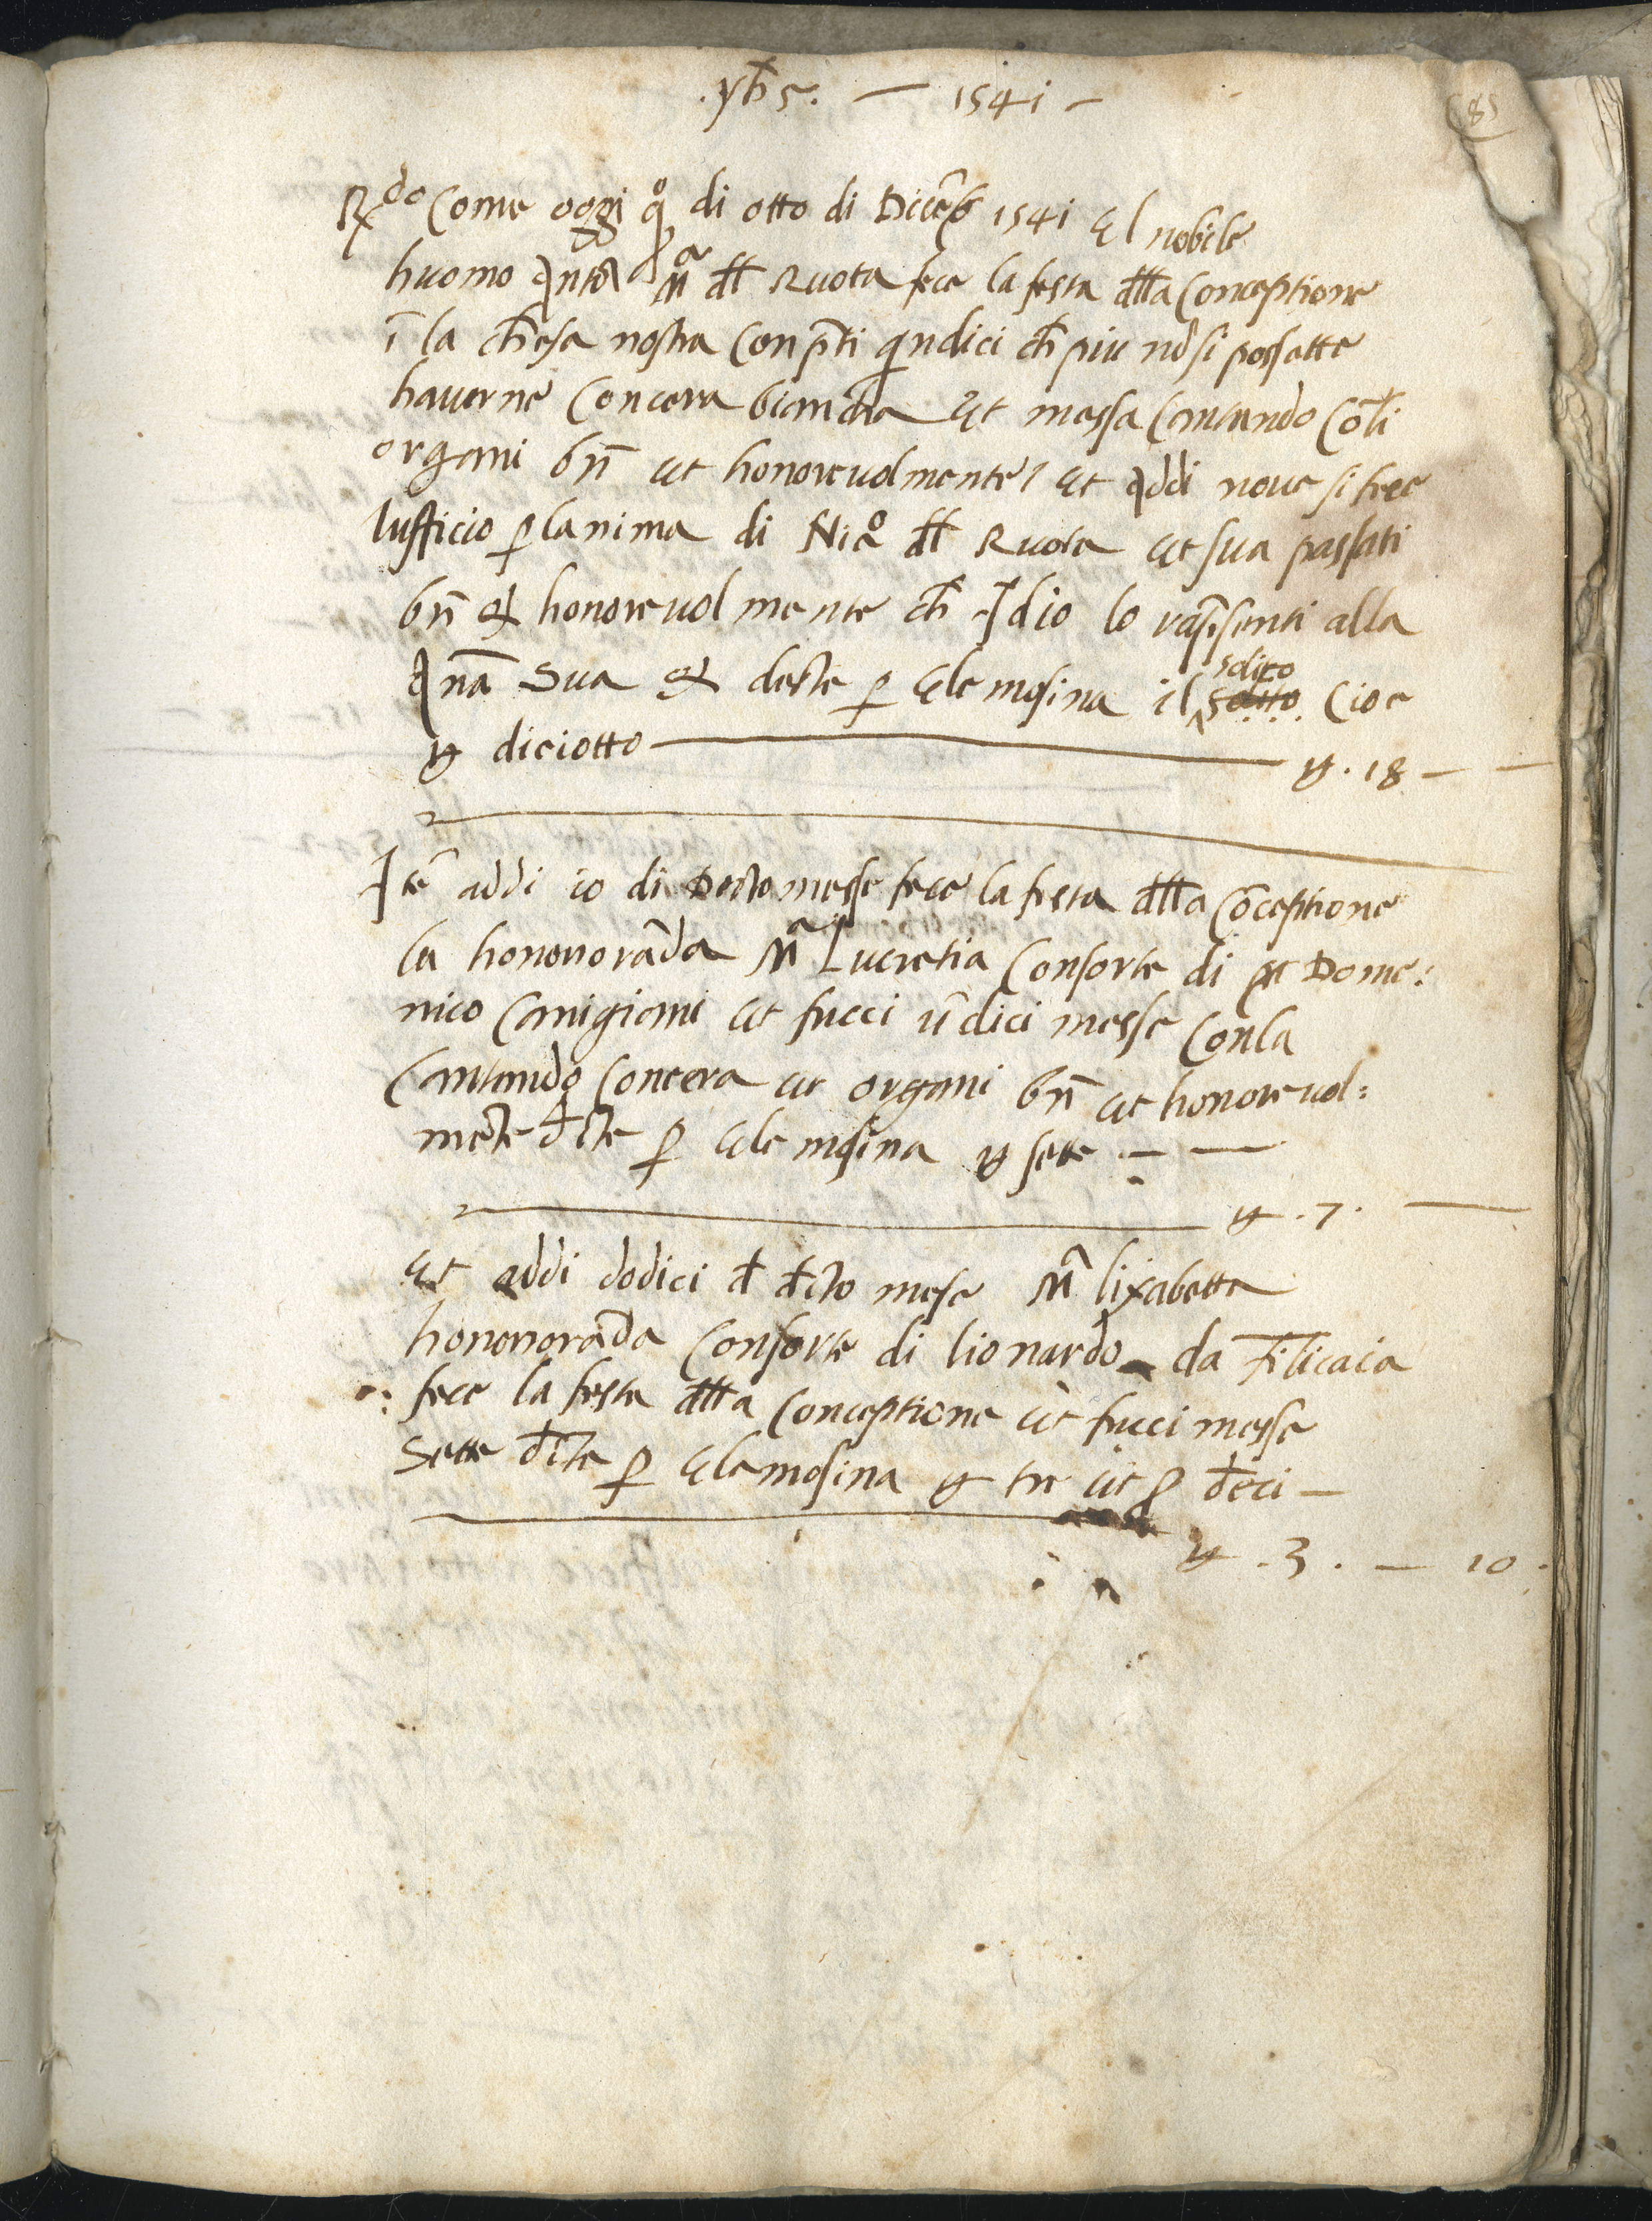 .yhs. — 1541 —
Rdo Come oggi qo di otto di Dicēb 1541 El nobile
huomo Antō Ma dl Ruota fece la festa dlla Conceptione
ī la chiesa nostra Con pti qndici ch piu nō si possette
haverne Con cera biancha et messa Cantando Coli
organi bn et honorevolmente / et Addi nove si fece
lufficio p lanima di Nico dl Ruota et sua passati
bn & honorevolmente ch Idio lo rapsenti alla
Ana Sua & dette p Elemosina il sdito sotto Cioe
y diciotto — y . 18 —
Itē addi 10 di Decto messe fece la festa dlla Cōceptione
la hononorāda Ma Lucretia Consorte di m Dome:
nico Canigiani et fucci ūdici messe Con la
Cantando Con cera et organi bn et honorevol:
mēte dcte p Elemosina y sette —
y . 7 . —
Et addi dodici d dcto mese Ma lixabetta
hononorāda Consorte di lionardo da Filicaia
fece la festa dlla Conceptione et fucci messe
Sette dcte p Elemosina y tre et s deci —
y . 3 . — 10 .